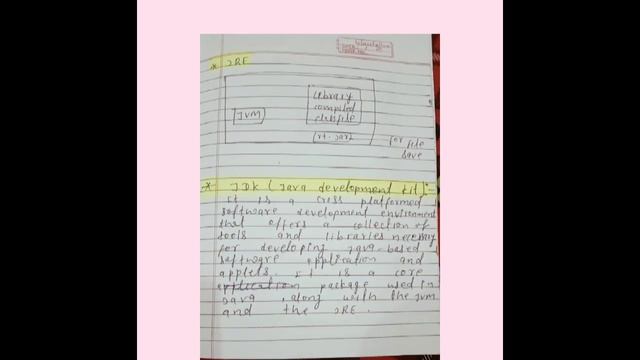 * JRE
library
compiled
JVM
classfile
rt.jar
for file
save
* JDK (Java development kit):-
it is a cross platformed
software development environment
that offers a collection of
tools and libraries necessary
for developing java-based
software application and
applets. it is a core
application package used in
Java, along with the JVM
and the JRE.